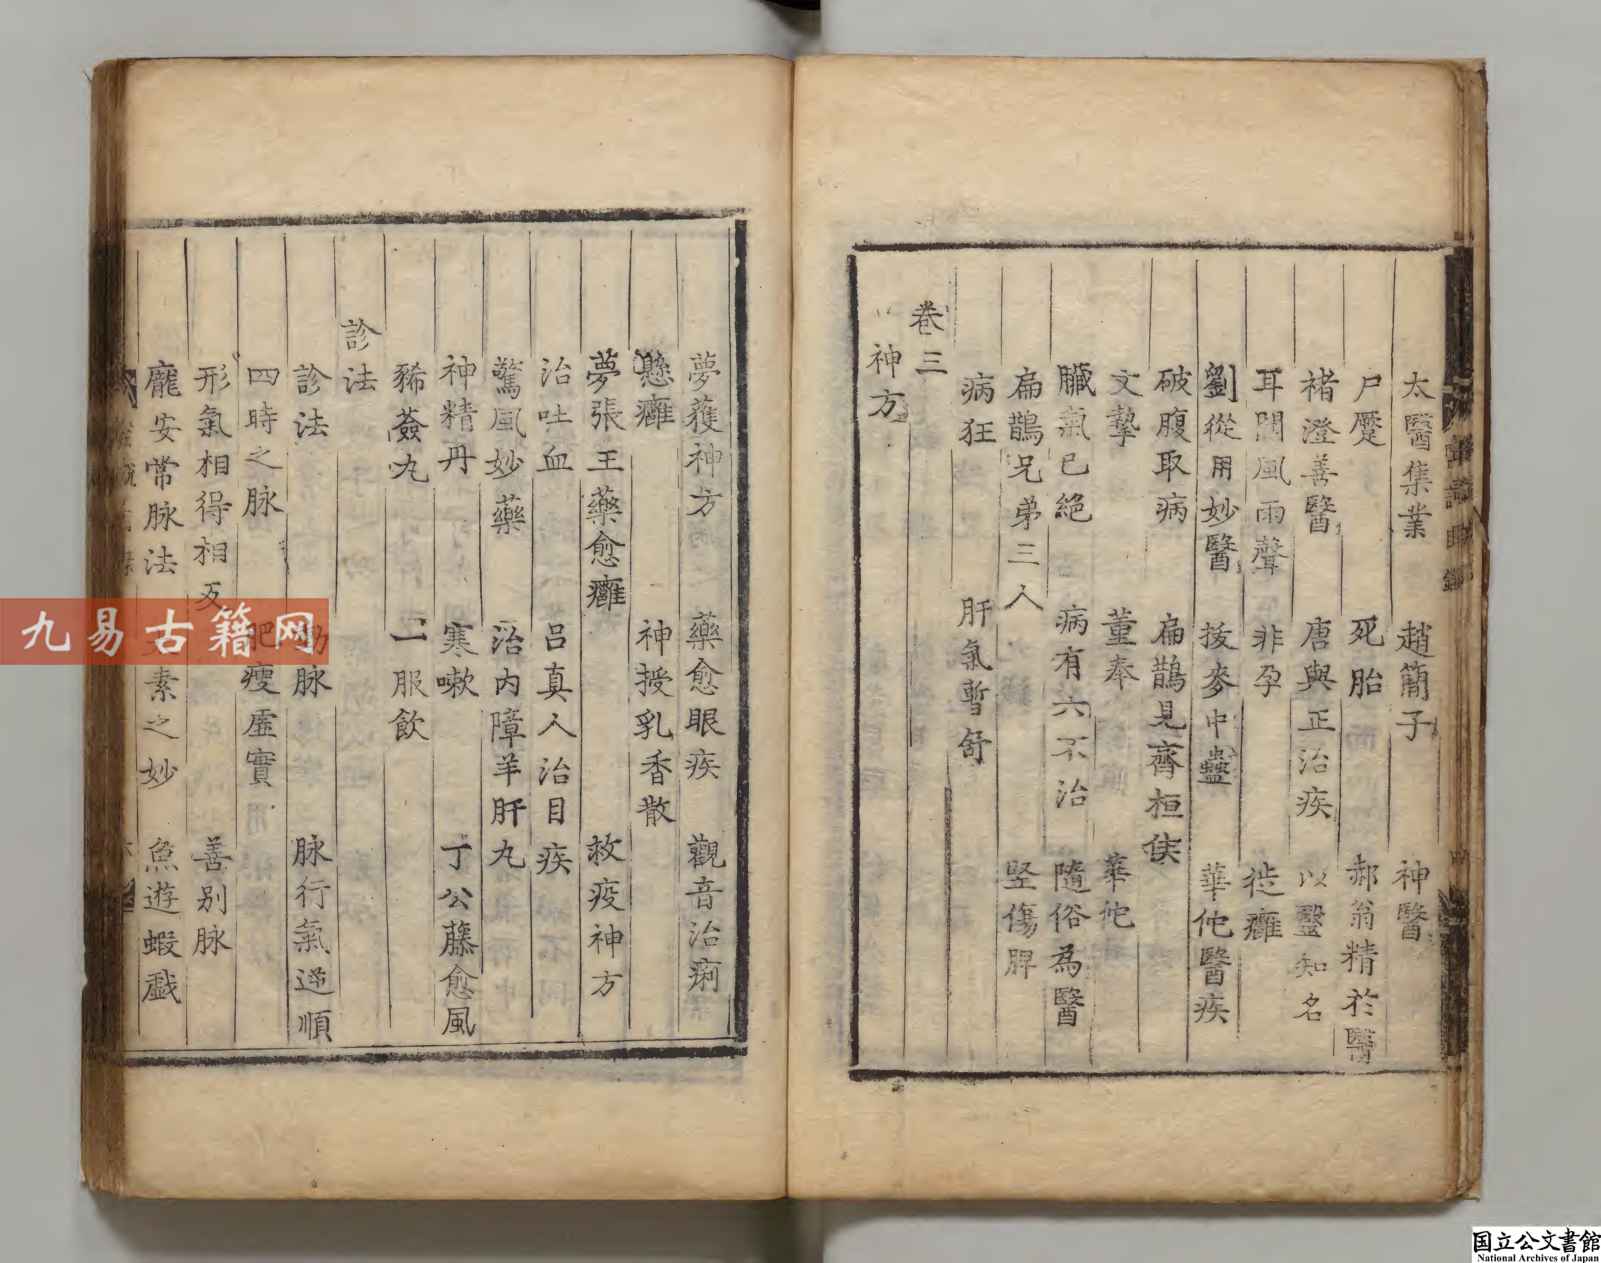 太醫集業　趙簡子　神醫
尸蹷　死胎　郝翁精於醫
褚澄善醫　唐與正治疾　以醫知名
耳聞風雨聲　非孕　徙癰
劉從用妙醫　蘷麥中蠱　華佗醫疾
破腹取病　扁鵲見齊桓侯
文摯　董奉　華佗
臟氣已絕　病有六不治　隨俗為醫
扁鵲兄弟三人　竪傷脾
病狂　肝氣暫舒
卷三
神方
夢蓰神方　藥愈眼疾　觀音治痢
懸癰　神授乳香散
夢張王藥愈癰　救疫神方
治吐血　呂真人治目疾
驚風妙藥　治內障羊肝丸
神精丹　寒嗽　丁公藤愈風
豨薟丸　一服飲
診法
診法　脉　脉行氣逆順
四時之脉　肥瘦虛實
形氣相得相反　善別脉
龐安常脉法　素之妙　魚遊蝦戲
九易古籍网
国立公文書館
National Archives of Japan